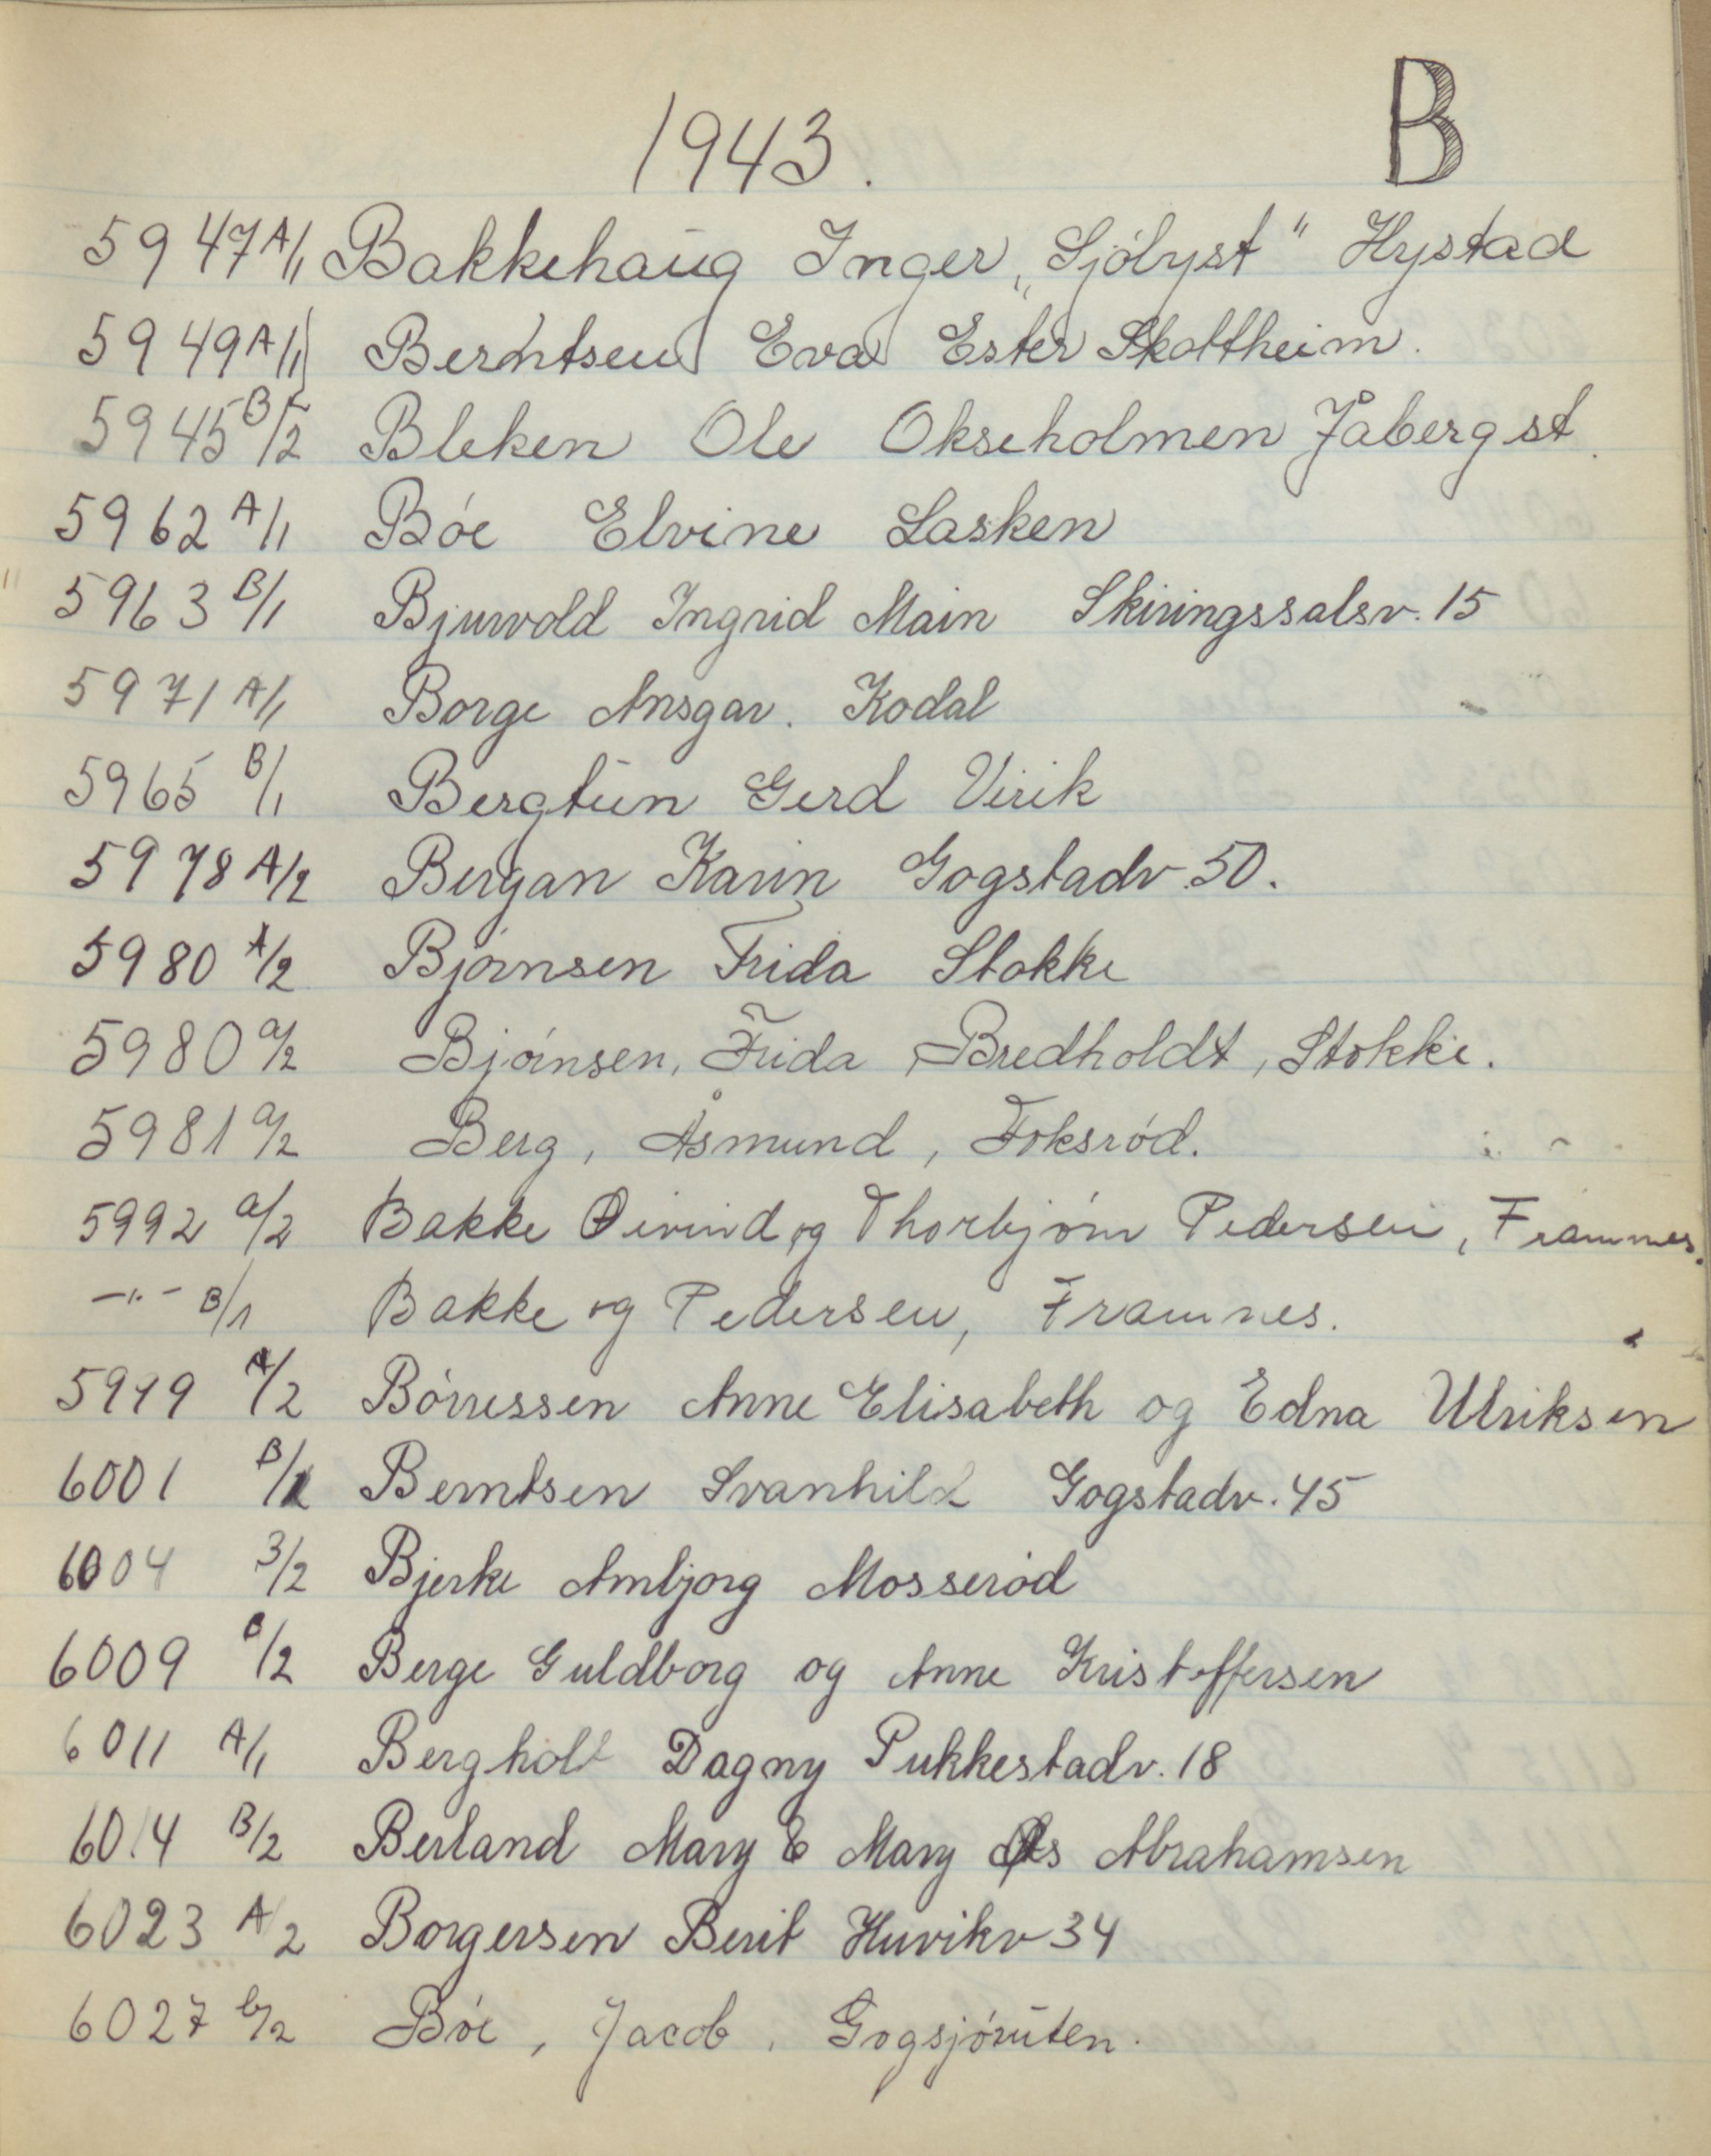 B
1943.
5947 A/1 Bakkehaug Inger „Sjólyst" Hystad
5949 A/1 Berntsen Eva Ester Skottheim.
5945 B/2 Bleken Ole Okseholmen Jåberg st.
5962 A/1 Bóe Elvine Lasken
5963 B/1 Bjurvold Ingrid Main Skiringssalsv. 15
5971 A/1 Borge Ansgar. Kodal
5965 B/1 Bergtun Gerd Virik
5978 A/2 Bergan Karin Gogstadv. 50.
5980 A/2 Bjórnsen Frida Stokke
5980 a/2 Bjórnsen, Frida, Bredholdt, Stokke.
5981 a/2 Berg, Åsmund, Foksród.
5992 a/2 Bakke Øivind og Thorbjórn Pedersen, Framnes.
—"— B/1 Bakke og Pedersen, Framnes.
5999 A/2 Bórressen Anne Elisabeth og Edna Ulriksen
6001 B/2 Berntsen Svanhild Gogstadv. 45
6004 3/2 Bjerke Arnbjorg Mosseród
6009 B/2 Berge Guldborg og Anne Kristoffersen
6011 A/1 Bergholt Dagny Pukkestadv. 18
6014 B/2 Berland Mary & Mary Abrahamsen
6023 A/2 Borgersen Berit Huvikv 34
6027 b/2 Bóe, Jacob, Gogsjóruten.